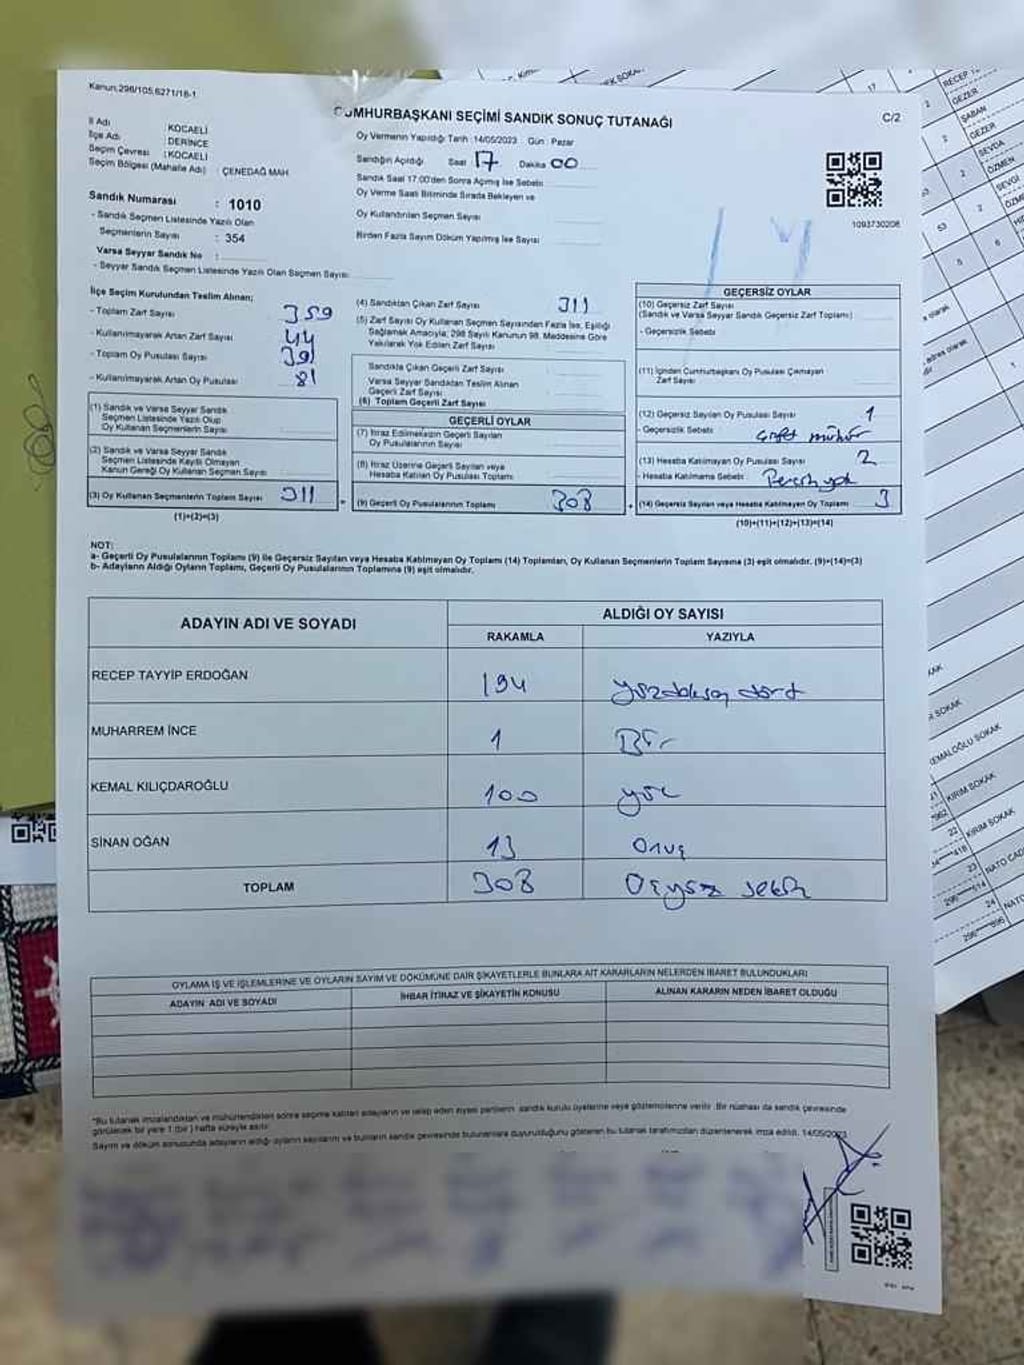 Kanun,298/105,6271/18-1
CUMHURBAŞKANI SEÇİMİ SANDIK SONUÇ TUTANAĞI
C/2
İl Adı : KOCAELİ
İlçe Adı : DERİNCE
Seçim Çevresi : KOCAELİ
Seçim Bölgesi (Mahalle Adı) : ÇENEDAĞ MAH
Sandık Numarası : 1010
- Sandık Seçmen Listesinde Yazılı Olan
Seçmenlerin Sayısı : 354
Varsa Seyyar Sandık No :
- Seyyar Sandık Seçmen Listesinde Yazılı Olan Seçmen Sayısı:
Oy Vermenin Yapıldığı Tarih : 14/05/2023 Gün : Pazar
Sandığın Açıldığı Saat 17 Dakika 00
Sandık Saat 17:00'den Sonra Açılmış İse Sebebi
Oy Verme Saati Bitiminde Sırada Bekleyen ve
Oy Kullandırılan Seçmen Sayısı
Birden Fazla Sayım Döküm Yapılmış İse Sayısı
1093730206
İlçe Seçim Kurulundan Teslim Alınan;
- Toplam Zarf Sayısı 359
- Kullanılmayarak Artan Zarf Sayısı 44
- Toplam Oy Pusulası Sayısı 391
- Kullanılmayarak Artan Oy Pusulası 81
(1) Sandık ve Varsa Seyyar Sandık
Seçmen Listesinde Yazılı Olup
Oy Kullanan Seçmenlerin Sayısı
(2) Sandık ve Varsa Seyyar Sandık
Seçmen Listesinde Kayıtlı Olmayan
Kanun Gereği Oy Kullanan Seçmen Sayısı
(3) Oy Kullanan Seçmenlerin Toplam Sayısı 311
(1)+(2)=(3)
(4) Sandıktan Çıkan Zarf Sayısı 311
(5) Zarf Sayısı Oy Kullanan Seçmen Sayısından Fazla İse, Eşitliği
Sağlamak Amacıyla; 298 Sayılı Kanunun 98. Maddesine Göre
Yakılarak Yok Edilen Zarf Sayısı
Sandıkta Çıkan Geçerli Zarf Sayısı
Varsa Seyyar Sandıktan Teslim Alınan
Geçerli Zarf Sayısı
(6) Toplam Geçerli Zarf Sayısı
GEÇERLİ OYLAR
(7) İtiraz Edilmeksizin Geçerli Sayılan
Oy Pusulalarının Sayısı
(8) İtiraz Üzerine Geçerli Sayılan veya
Hesaba Katılan Oy Pusulası Toplamı
= (9) Geçerli Oy Pusulalarının Toplamı 308
GEÇERSİZ OYLAR
(10) Geçersiz Zarf Sayısı
(Sandık ve Varsa Seyyar Sandık Geçersiz Zarf Toplamı)
- Geçersizlik Sebebi
(11) İçinden Cumhurbaşkanı Oy Pusulası Çıkmayan
Zarf Sayısı
(12) Geçersiz Sayılan Oy Pusulası Sayısı 1
- Geçersizlik Sebebi Çift mühür
(13) Hesaba Katılmayan Oy Pusulası Sayısı 2
- Hesaba Katılmama Sebebi
+ (14) Geçersiz Sayılan veya Hesaba Katılmayan Oy Toplamı 3
(10)+(11)+(12)+(13)=(14)
NOT:
a- Geçerli Oy Pusulalarının Toplamı (9) ile Geçersiz Sayılan veya Hesaba Katılmayan Oy Toplamı (14) Toplamları, Oy Kullanan Seçmenlerin Toplam Sayısına (3) eşit olmalıdır. (9)+(14)=(3)
b- Adayların Aldığı Oyların Toplamı, Geçerli Oy Pusulalarının Toplamına (9) eşit olmalıdır.
ADAYIN ADI VE SOYADI ALDIĞI OY SAYISI
RAKAMLA YAZIYLA
RECEP TAYYİP ERDOĞAN 194 dört
MUHARREM İNCE 1 Bir
KEMAL KILIÇDAROĞLU 100 yüz
SİNAN OĞAN 13 Onüç
TOPLAM 308 Üçyüz sekiz
OYLAMA İŞ VE İŞLEMLERİNE VE OYLARIN SAYIM VE DÖKÜMÜNE DAİR ŞİKAYETLERLE BUNLARA AİT KARARLARIN NELERDEN İBARET BULUNDUKLARI
ADAYIN ADI VE SOYADI İHBAR İTİRAZ VE ŞİKAYETİN KONUSU ALINAN KARARIN NEDEN İBARET OLDUĞU
*Bu tutanak imzalandıktan ve mühürlendikten sonra seçime katılan adayların ve talep eden siyasi partilerin sandık kurulu üyelerine veya gözlemcilerine verilir. Bir nüshası da sandık çevresinde
görülecek bir yere 1 (bir) hafta süreyle asılır.
Sayım ve döküm sonucunda adayların aldığı oyların sayılarını ve bunların sandık çevresinde bulunanlara duyurulduğunu gösteren bu tutanak tarafımızdan düzenlenerek imza edildi. 14/05/2023
RECEP
GEZER
ŞABAN
GEZER
SEVDA
ÖZMEN
SEVGİ
KIRIM SOKAK
KIRIM SOKAK